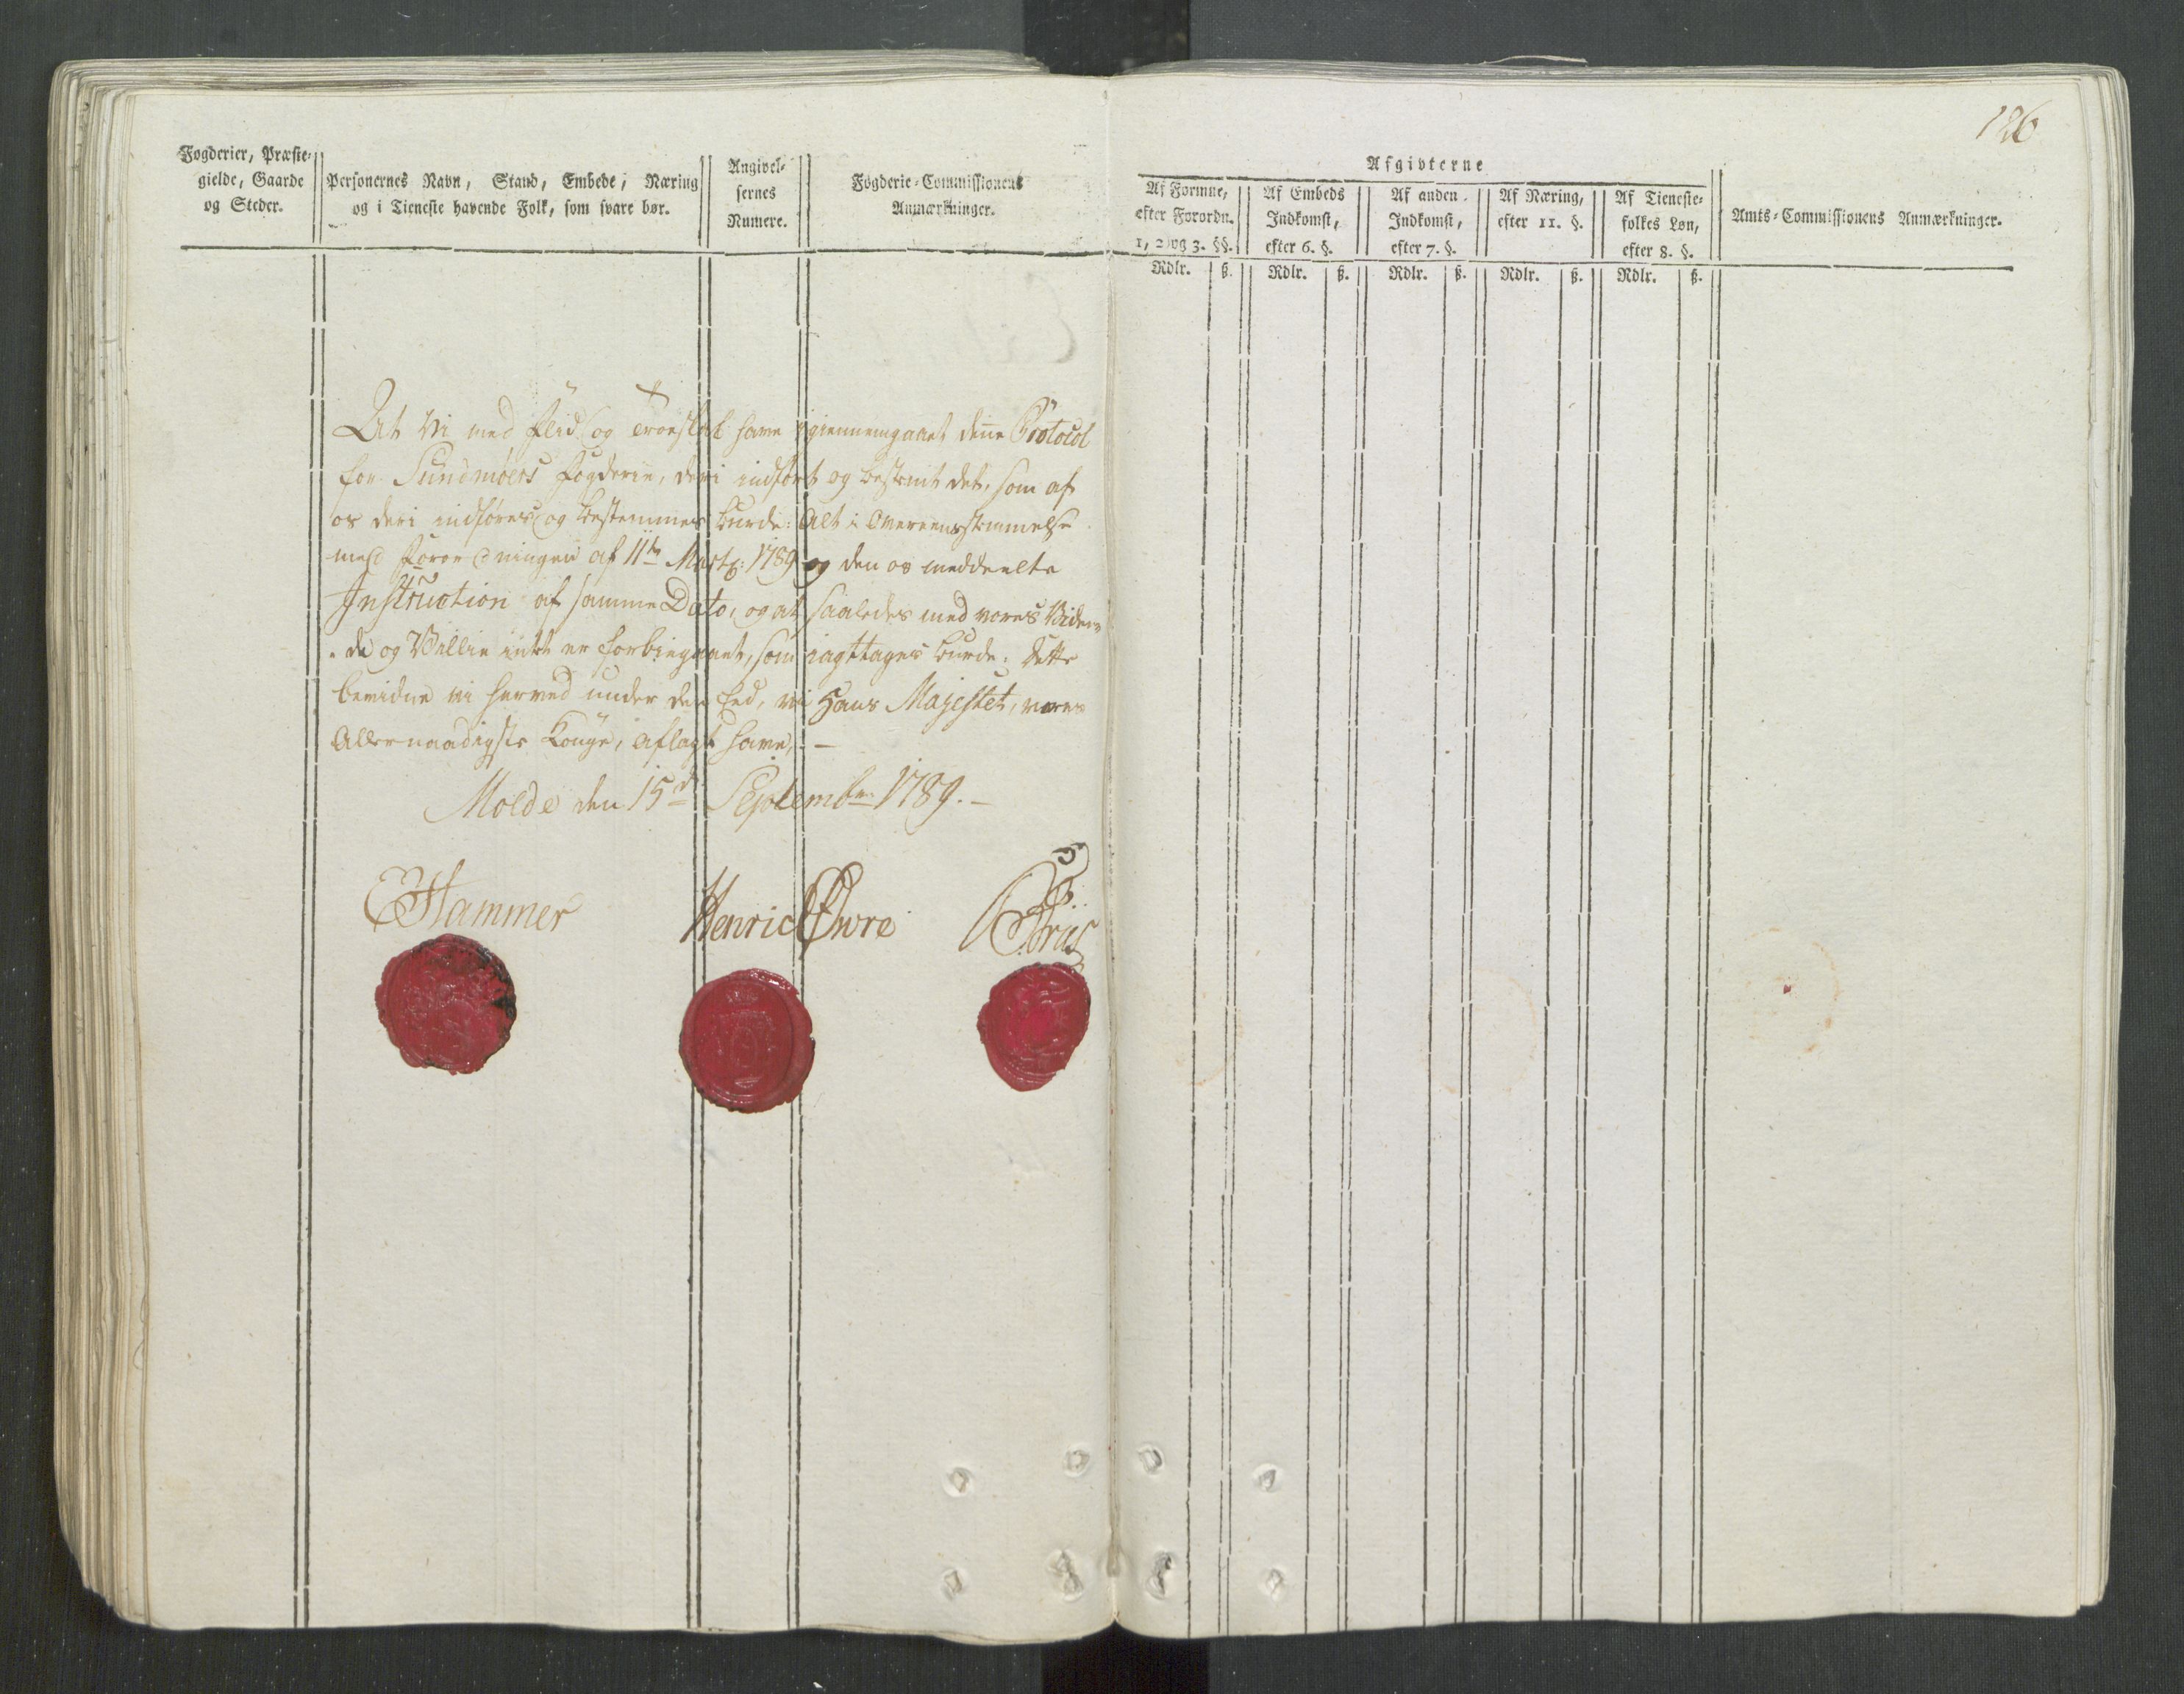 Fogderier, Præste-
gielde, Gaarde
og Steder.
Personernes Navn, Stand, Embede, Næring
og i Tieneste havende Folk, som svare bør.
Angivel-
sernes
Numere.
Fogderie-Commissionens
Anmærkninger.
At Vi med Flid og Troeskab have igiennemgaaet denne Protocol
for Sundmøers Fogderie, deri indført og bestemt det, som af
os deri indføres og bestemmes burde: Alt i Overeensstemmelse
med Forordningen af 11te Martz: 1789 og den os meddeelte
Instruction af samme Dato, og at saaledes med vores Viden-
de og Villie intet er forbiegaaet, som iagttages burde; dette
bevidne vi herved under den Eed, vi Hans Majestet, vores
Allernaadigste Konge, aflagt have, –
Molde den 15de Septembr 1789. –
Hammer
Henric Øwre
186
Afgivterne
Af Formue,
efter Forordn.
1, 2 og 3. §§.
Af Embeds
Indkomst,
efter 6. §.
Af anden
Indkomst,
efter 7. §.
Af Næring,
efter 11. §.
Af Tieneste-
folkes Løn,
efter 8. §.
Amts-Commissionens Anmærkninger.
Rdlr. ß. Rdlr. ß. Rdlr. ß. Rdlr. ß. Rdlr. ß.